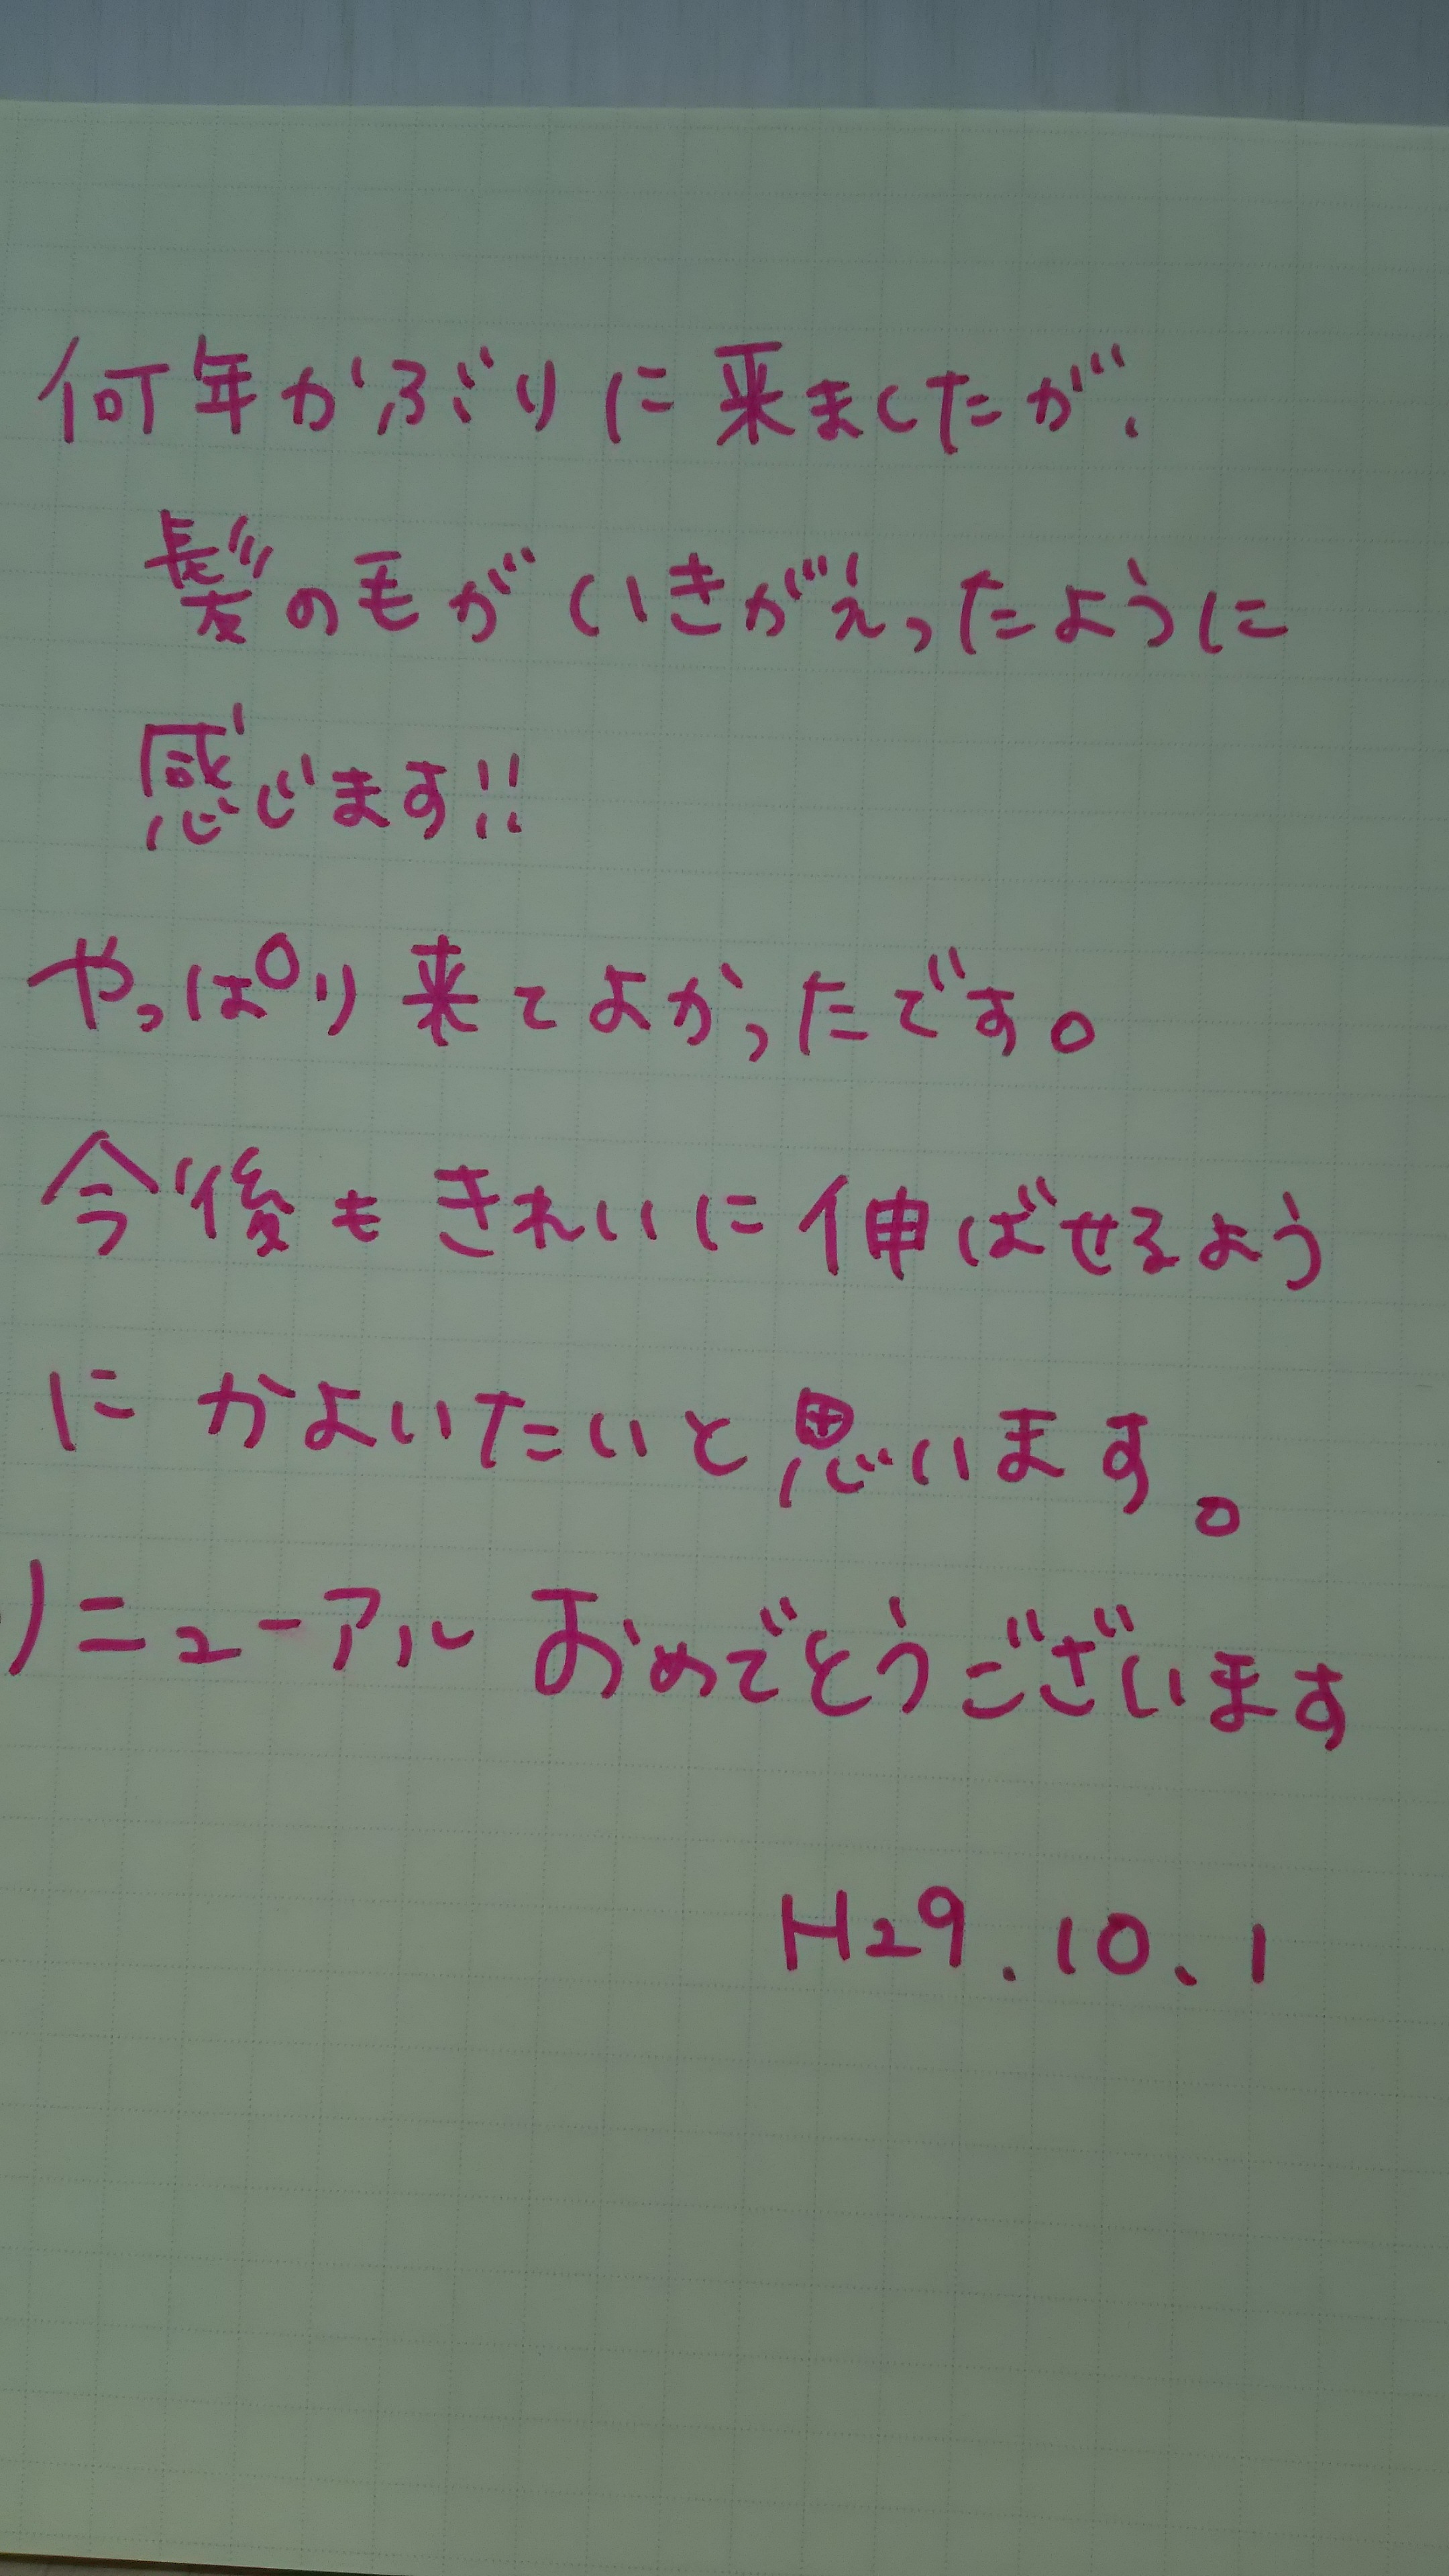 何年かぶりに来ましたが、
髪の毛がいきがえったように
感じます!!
やっぱり来てよかったです。
今後もきれいに伸ばせるよう
にかよいたいと思います。
リニューアルおめでとうございます
H29.10、1